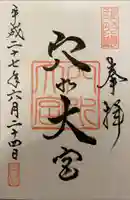 奉拝
穴水大宮
平成二十七年六月二十四日